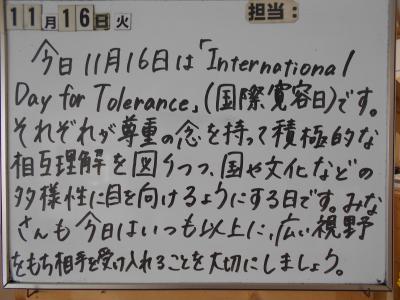 11月16日火 担当:
今日11月16日は「International
Day for Tolerance」(国際寛容日)です。
それぞれが尊重の念を持って積極的な
相互理解を図りつつ、国や文化などの
多様性に目を向けるようにする日です。みな
さんも今日はいつも以上に、広い視野
をもち相手を受け入れることを大切にしましょう。